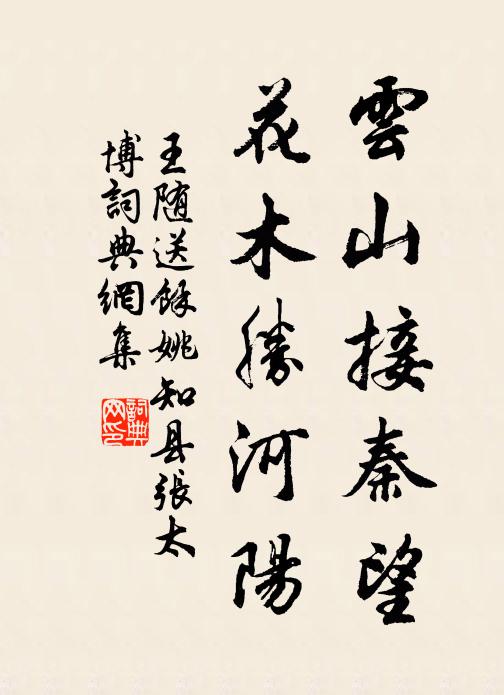 雲山接秦望
花木勝河陽
王随送餘姚知县張太
博詞典網集
詞典
网印